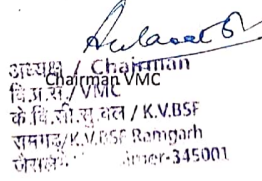 अध्यक्ष / Chairman
Chairman VMC
वि.प्र.स./VMC
के.वि.सी.सु.बल / K.V.BSF
रामगढ़/K.V.BSF Ramgarh
345001